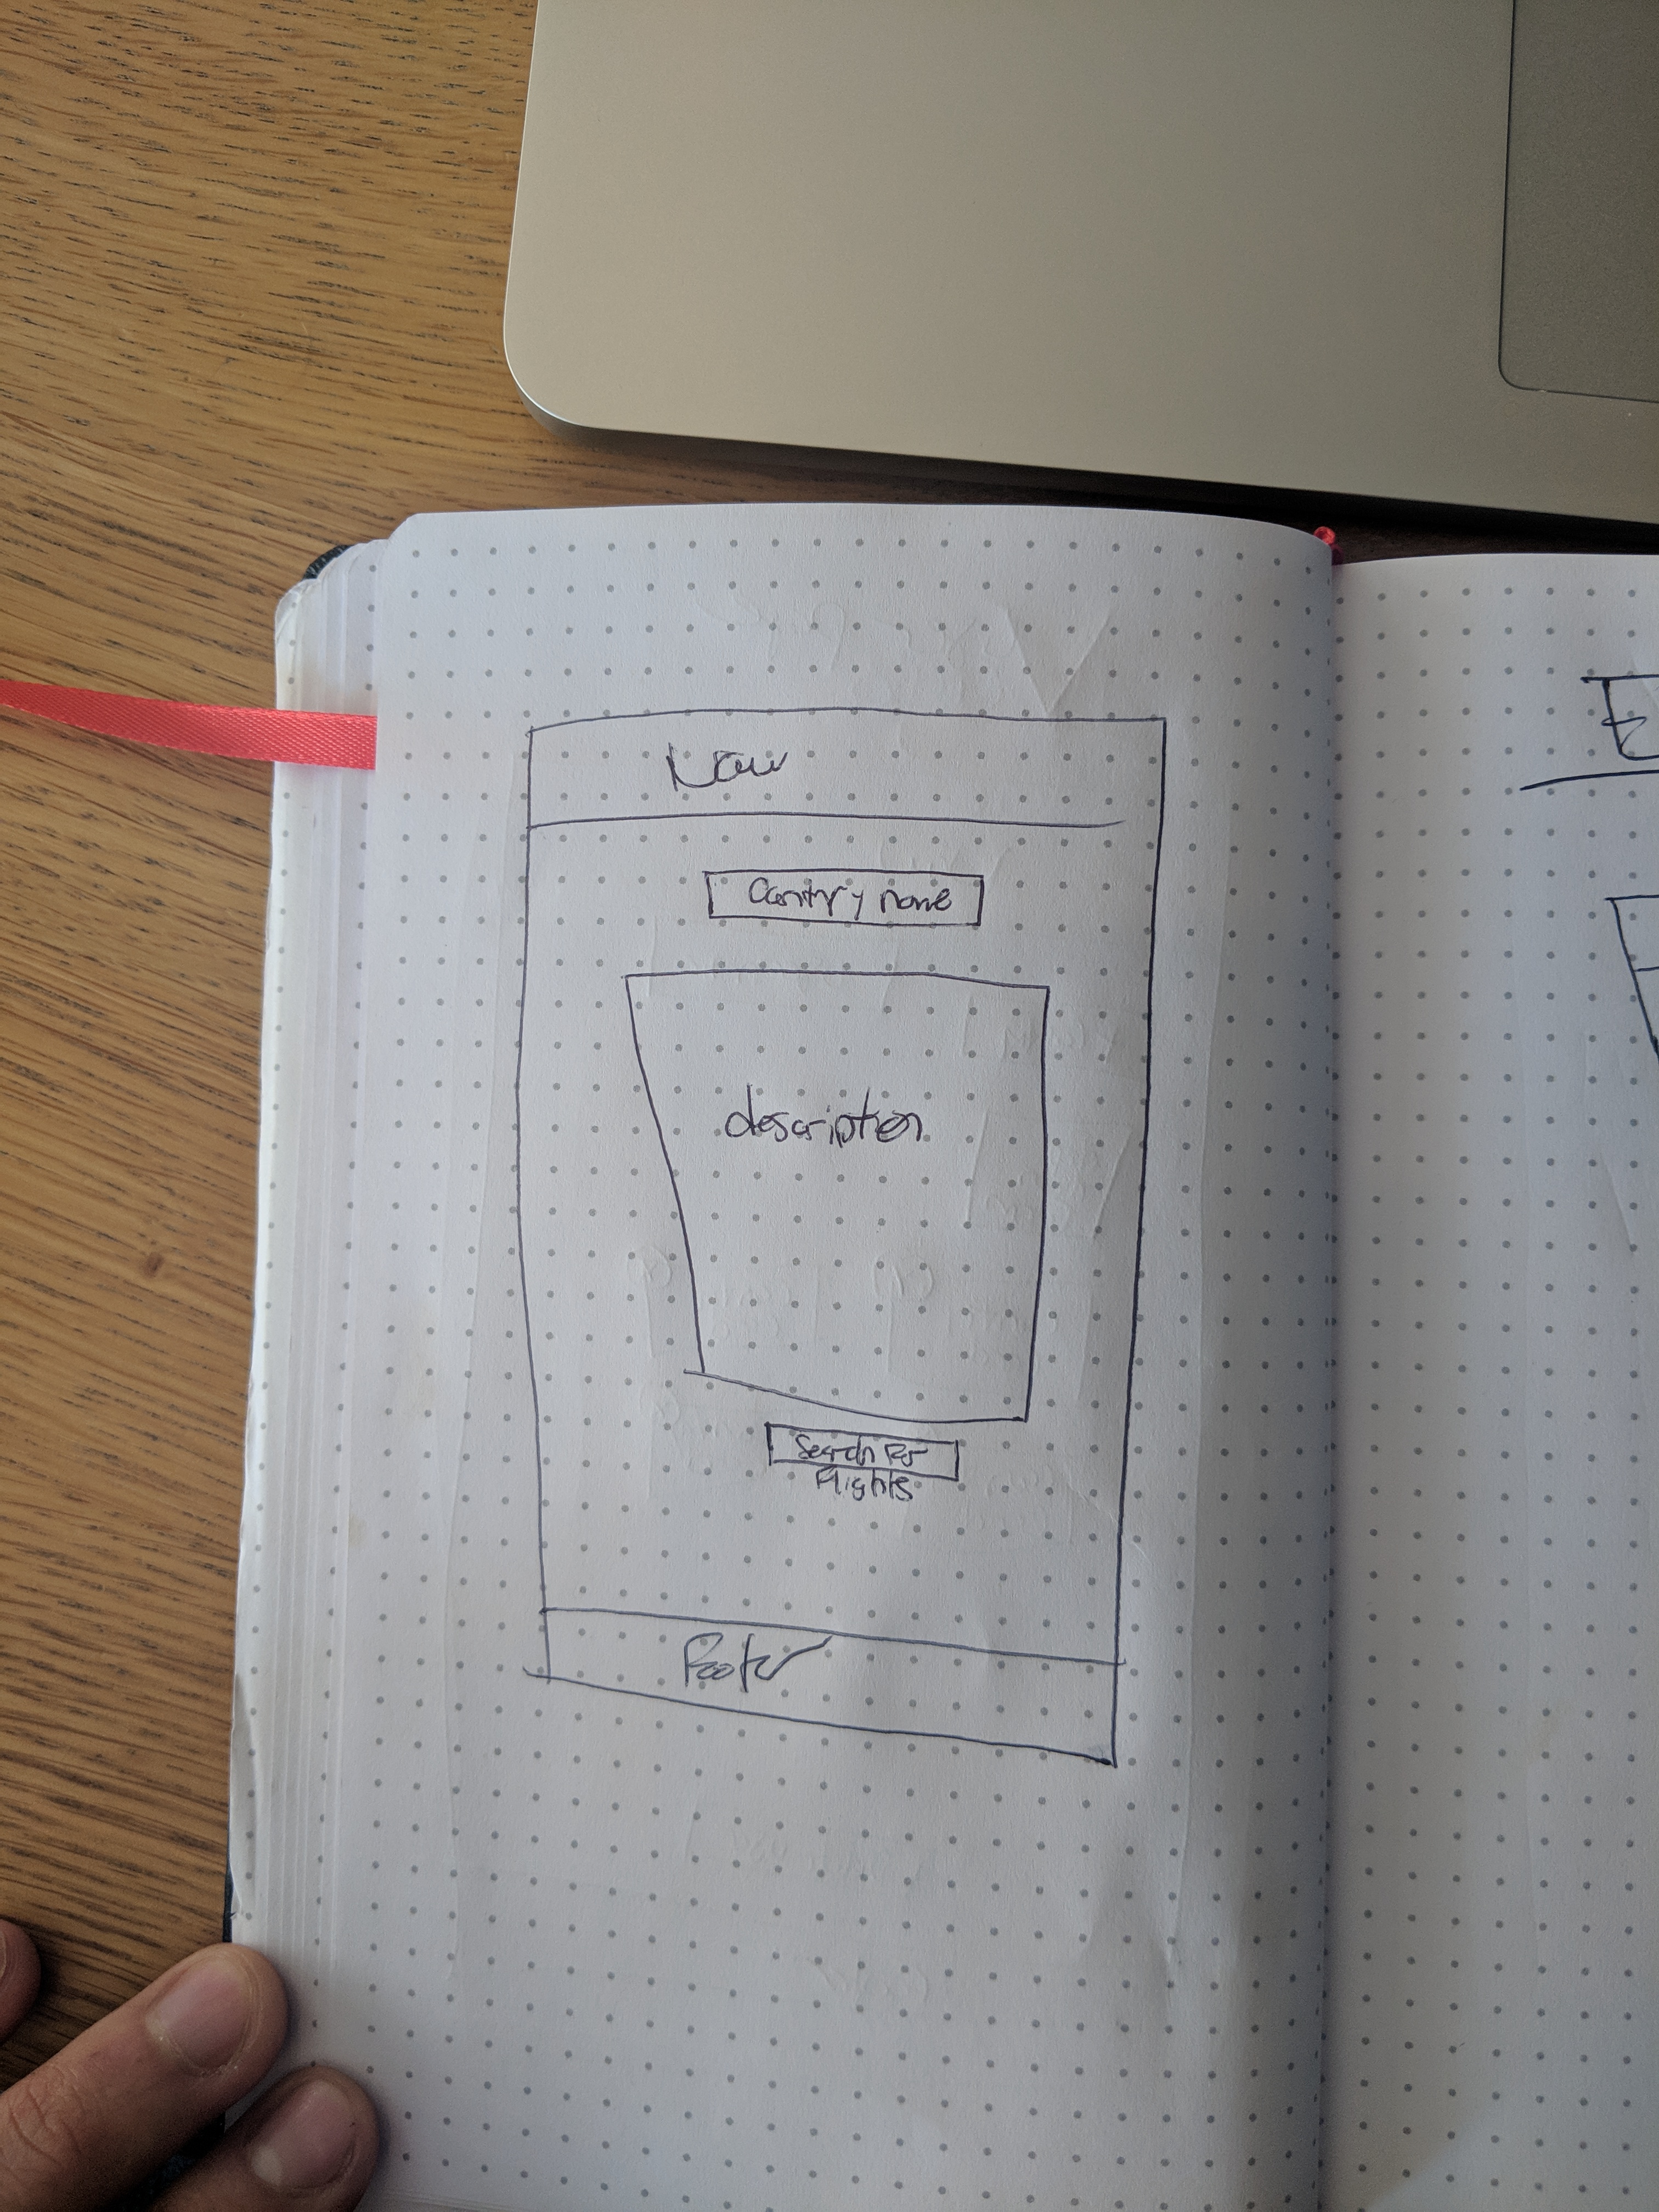 Nav
Country name
description
Search For
Flights
Footer